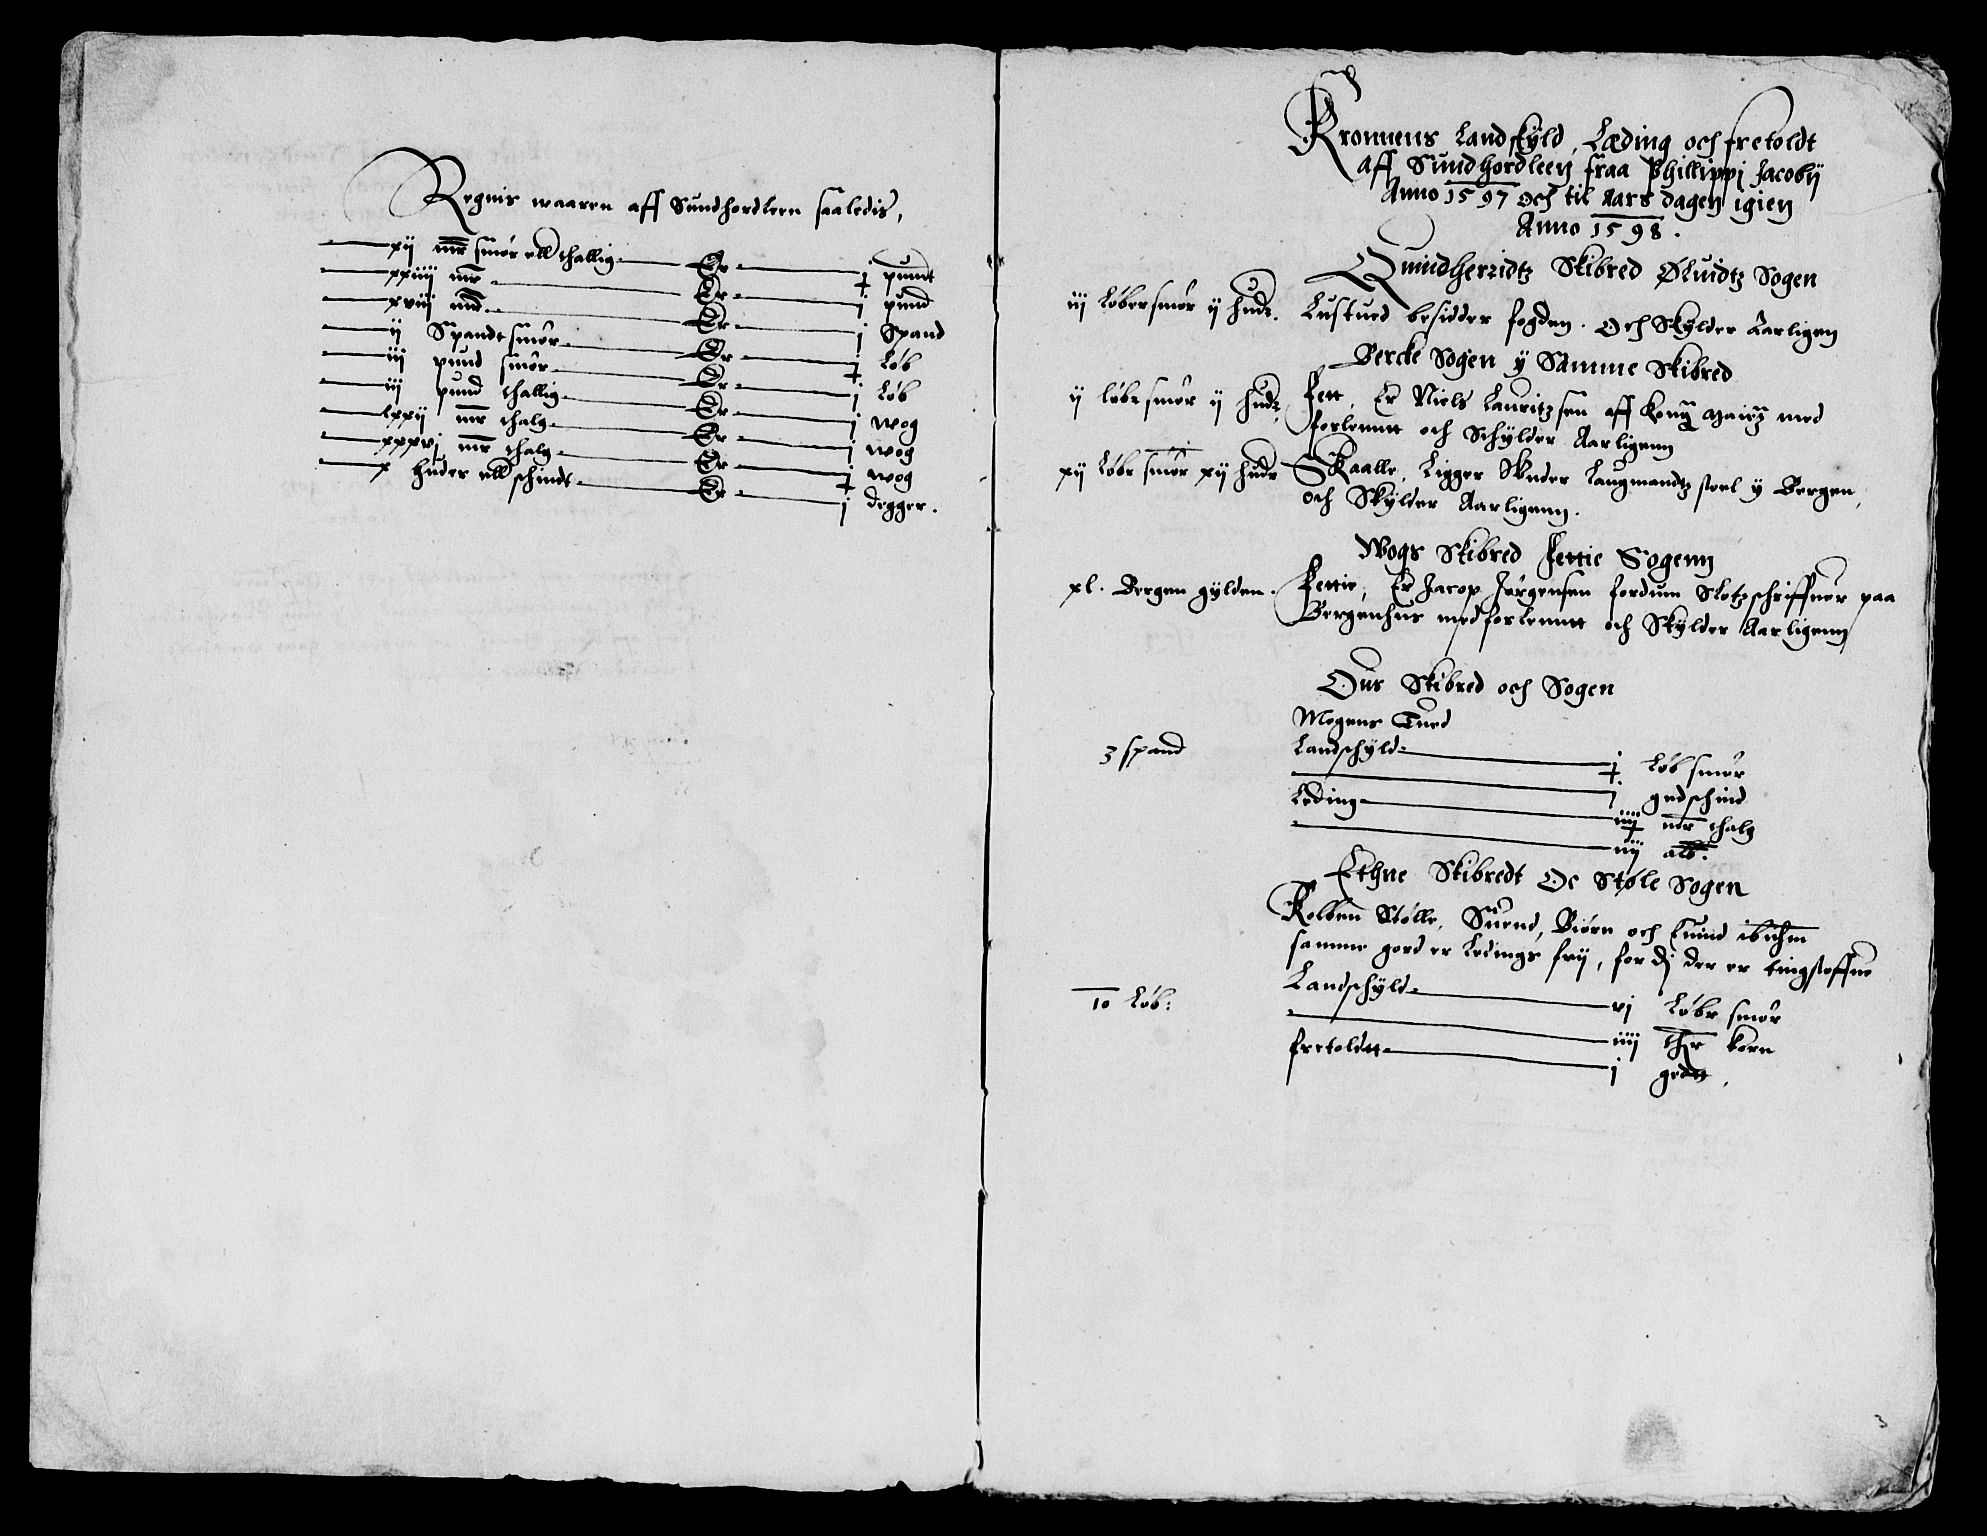 Regnis waaren aff Sundhordleen saaledis,
xij mr smør ell thallig Er ɉ pund
xxiiij mr Er j pund
xviij mr Er j Spand
ij Spandt smør Er ɉ Løb
iij pund smør Er j Løb
iij pund thallig Er j wog
lxxij mr thalg Er j wog
xxxvj mr thalg Er ɉ wog
x huder ell schindt Er j degger.
Kronnens Landskyld, Læding och fretoldt
aff Sundhordleen fraa Phillippj Jacobij
Anno 1597 och til Aars dagen igien
Anno 1598.
Quindherridtz Skibred Øluidtz Sogen
iij Løber smør ij huder. Lustued besidder fogden. Och Skylder Aarligen
Bercke Sogen y Samme Skibred
ij løbr smør ij huder Fett, Er Niels Lauritzsen aff Kong Maitz med
forlenntt och Schylder Aarligenn
xij Løbr smør xij huder Skaalle, Ligger Wnder Laugmandtz stoel y Bergen,
och Skylder Aarligenn.
Wogs Skibred Fettie Sogenn
xl. Bergen gylden. Fettie, Er Jacop Jørgensen fordum Slotzschriffuer paa
Bergenhus med forlenntt och Skylder Aarligenn
Ous Skibred och Sogen
Mogens Tued
3 spand Landschyld j Løb smør
ɉ gedschind
Leding iiij mr thalg
iiij alb.
Ethne Skibredt Oc Støle Sogen
Kolben Stølle, Suend, Biørn och Euind ibidem
samme gord er Ledings frij, for dj der er tingstoffue
10 Løb: Landschyld vj Løbr smør
iiij thr korn
fretoldtt j gedtt,
3